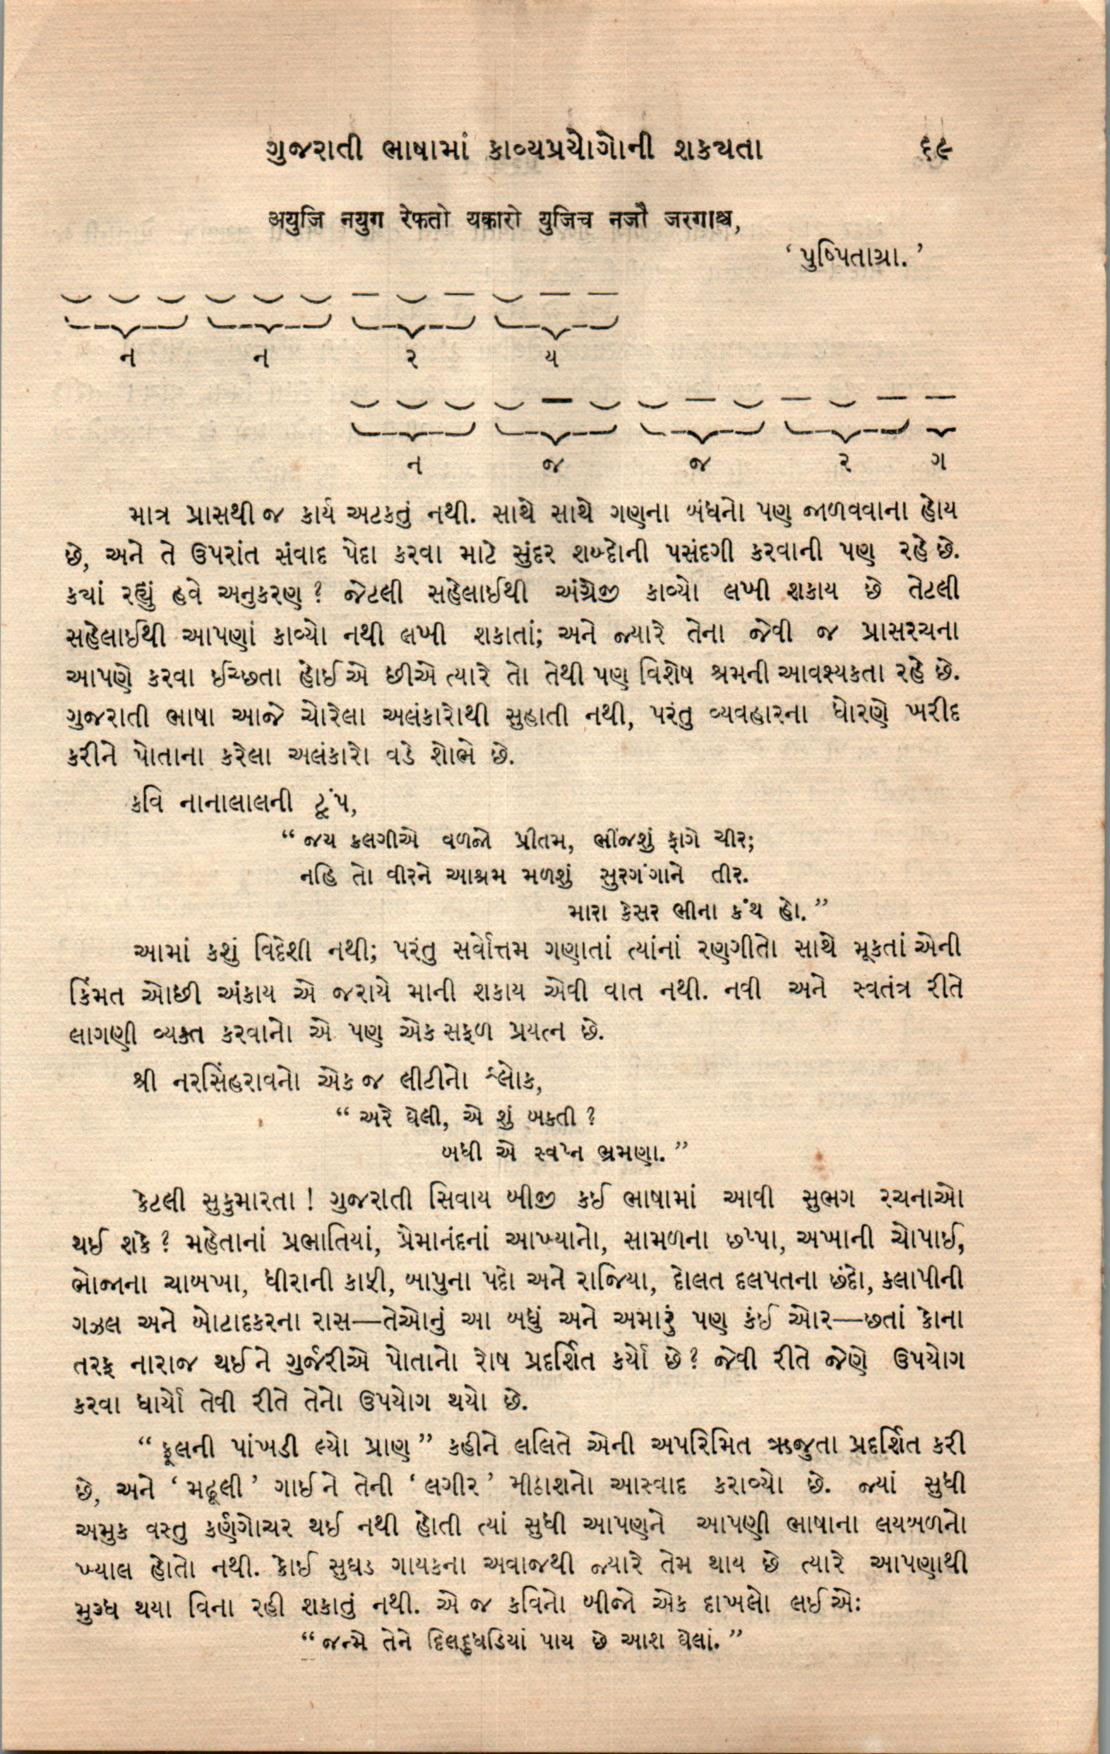 ગુજરાતી ભાષામાં કાવ્યપ્રયોગોની શક્યતા ૬૯
अयुजि नयुग रेफतो यकारो युजिच नजौ जरगाश्च,
‘ પુષ્પિતાગ્રા. ’
ન ન ર ય
ન જ જ ર ગ
માત્ર પ્રાસથી જ કાર્ય અટકતું નથી. સાથે સાથે ગણના બંધનો પણ જાળવવાના હોય
છે, અને તે ઉપરાંત સંવાદ પેદા કરવા માટે સુંદર શબ્દોની પસંદગી કરવાની પણ રહે છે.
ક્યાં રહ્યું હવે અનુકરણ ? જેટલી સહેલાઈથી અંગ્રેજી કાવ્યો લખી શકાય છે તેટલી
સહેલાઈથી આપણાં કાવ્યો નથી લખી શકાતાં; અને જ્યારે તેના જેવી જ પ્રાસરચના
આપણે કરવા ઈચ્છતા હોઈએ છીએ ત્યારે તો તેથી પણ વિશેષ શ્રમની આવશ્યકતા રહે છે.
ગુજરાતી ભાષા આજે ચોરેલા અલંકારોથી સુહાતી નથી, પરંતુ વ્યવહારના ધોરણે ખરીદ
કરીને પોતાના કરેલા અલંકારો વડે શોભે છે.
કવિ નાનાલાલની ટૂંપ,
“ જય કલગીએ વળજો પ્રીતમ, ભીંજશું ફાગે ચીર;
નહિ તો વીરને આશ્રમ મળશું સુરગંગાને તીર.
મારા કેસર ભીના કંથ હો. ”
આમાં કશું વિદેશી નથી; પરંતુ સર્વોત્તમ ગણાતાં ત્યાંનાં રણગીતો સાથે મૂકતાં એની
કિંમત ઓછી અંકાય એ જરાયે માની શકાય એવી વાત નથી. નવી અને સ્વતંત્ર રીતે
લાગણી વ્યક્ત કરવાનો એ પણ એક સફળ પ્રયત્ન છે.
શ્રી નરસિંહરાવનો એક જ લીટીનો શ્લોક,
“ અરે ઘેલી, એ શું બકતી ?
બધી એ સ્વપ્ન ભ્રમણા. ”
કેટલી સુકુમારતા ! ગુજરાતી સિવાય બીજી કઈ ભાષામાં આવી સુભગ રચનાઓ
થઈ શકે ? મહેતાનાં પ્રભાતિયાં, પ્રેમાનંદનાં આખ્યાનો, સામળના છપ્પા, અખાની ચોપાઈ,
ભોજાના ચાબખા, ધીરાની કાફી, બાપુના પદો અને રાજિયા, દોલત દલપતના છંદો, કલાપીની
ગઝલ અને બોટાદકરના રાસ—તેઓનું આ બધું અને અમારું પણ કંઈ ઓર—છતાં કોના
તરફ નારાજ થઈને ગુર્જરીએ પોતાનો રોષ પ્રદર્શિત કર્યો છે ? જેવી રીતે જેણે ઉપયોગ
કરવા ધાર્યો તેવી રીતે તેનો ઉપયોગ થયો છે.
“ ફૂલની પાંખડી લ્યો પ્રાણ ” કહીને લલિતે એની અપરિમિત ઋજુતા પ્રદર્શિત કરી
છે, અને ‘ મઢૂલી ’ ગાઈને તેની ‘ લગીર ’ મીઠાશનો આસ્વાદ કરાવ્યો છે. જ્યાં સુધી
અમુક વસ્તુ કર્ણગોચર થઈ નથી હોતી ત્યાં સુધી આપણને આપણી ભાષાના લયબળનો
ખ્યાલ હોતો નથી. કોઈ સુઘડ ગાયકના અવાજથી જ્યારે તેમ થાય છે ત્યારે આપણાથી
મુગ્ધ થયા વિના રહી શકાતું નથી. એ જ કવિનો બીજો એક દાખલો લઈએઃ
“ જન્મે તેને દિલદુધડિયાં પાય છે આશ ઘેલાં. ”